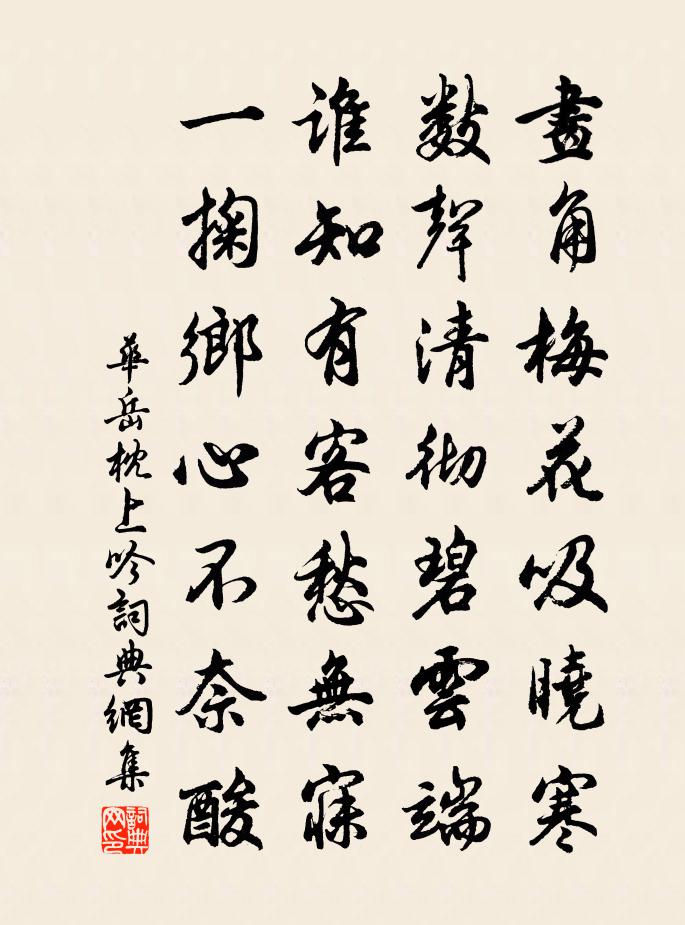 畫角梅花吸曉寒
數聲清徹碧雲端
誰知有客愁無寐
一掬鄉心不奈酸
華岳枕上吟詞典網集
詞典网印